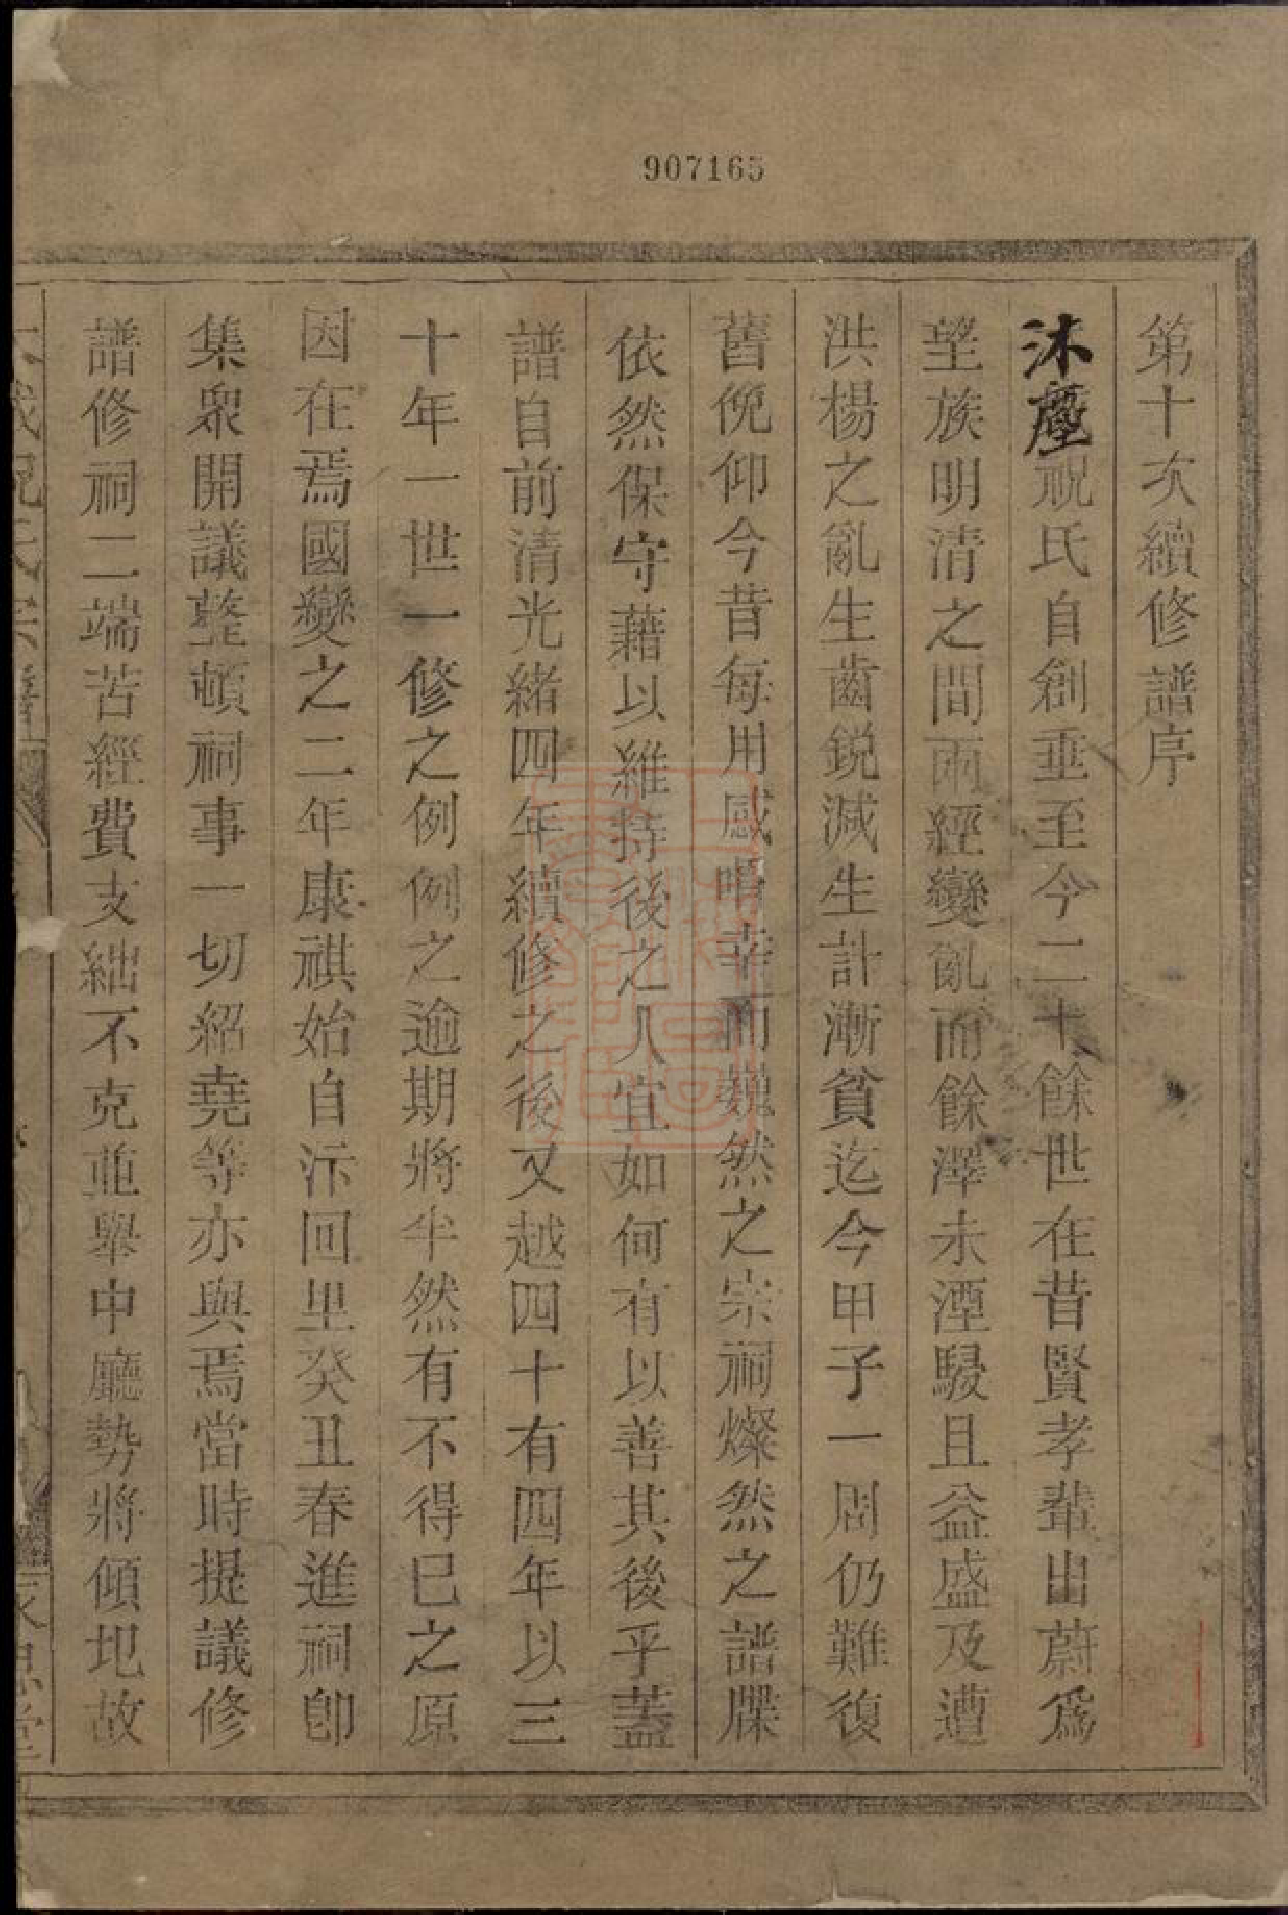 907165
第十次續修譜序
沐塵祝氏自創垂至今二十餘世在昔賢孝輩出蔚爲
望族明清之間兩經變亂而餘澤未湮駸且益盛及遭
洪楊之亂生齒銳減生計漸貧迄今甲子一周仍難復
舊俛仰今昔每用感喟幸而巍然之宗祠燦然之譜牒
依然保守藉以維持後之人宜如何有以善其後乎蓋
譜自前清光緒四年續修之後又越四十有四年以三
十年一世一修之例例之逾期將半然有不得已之原
因在焉國變之二年康祺始自沶回里癸丑春進祠卽
集衆開議整頓祠事一切紹堯等亦與焉當時提議修
譜修祠二端苦經費支絀不克並舉中廳勢將傾圯故